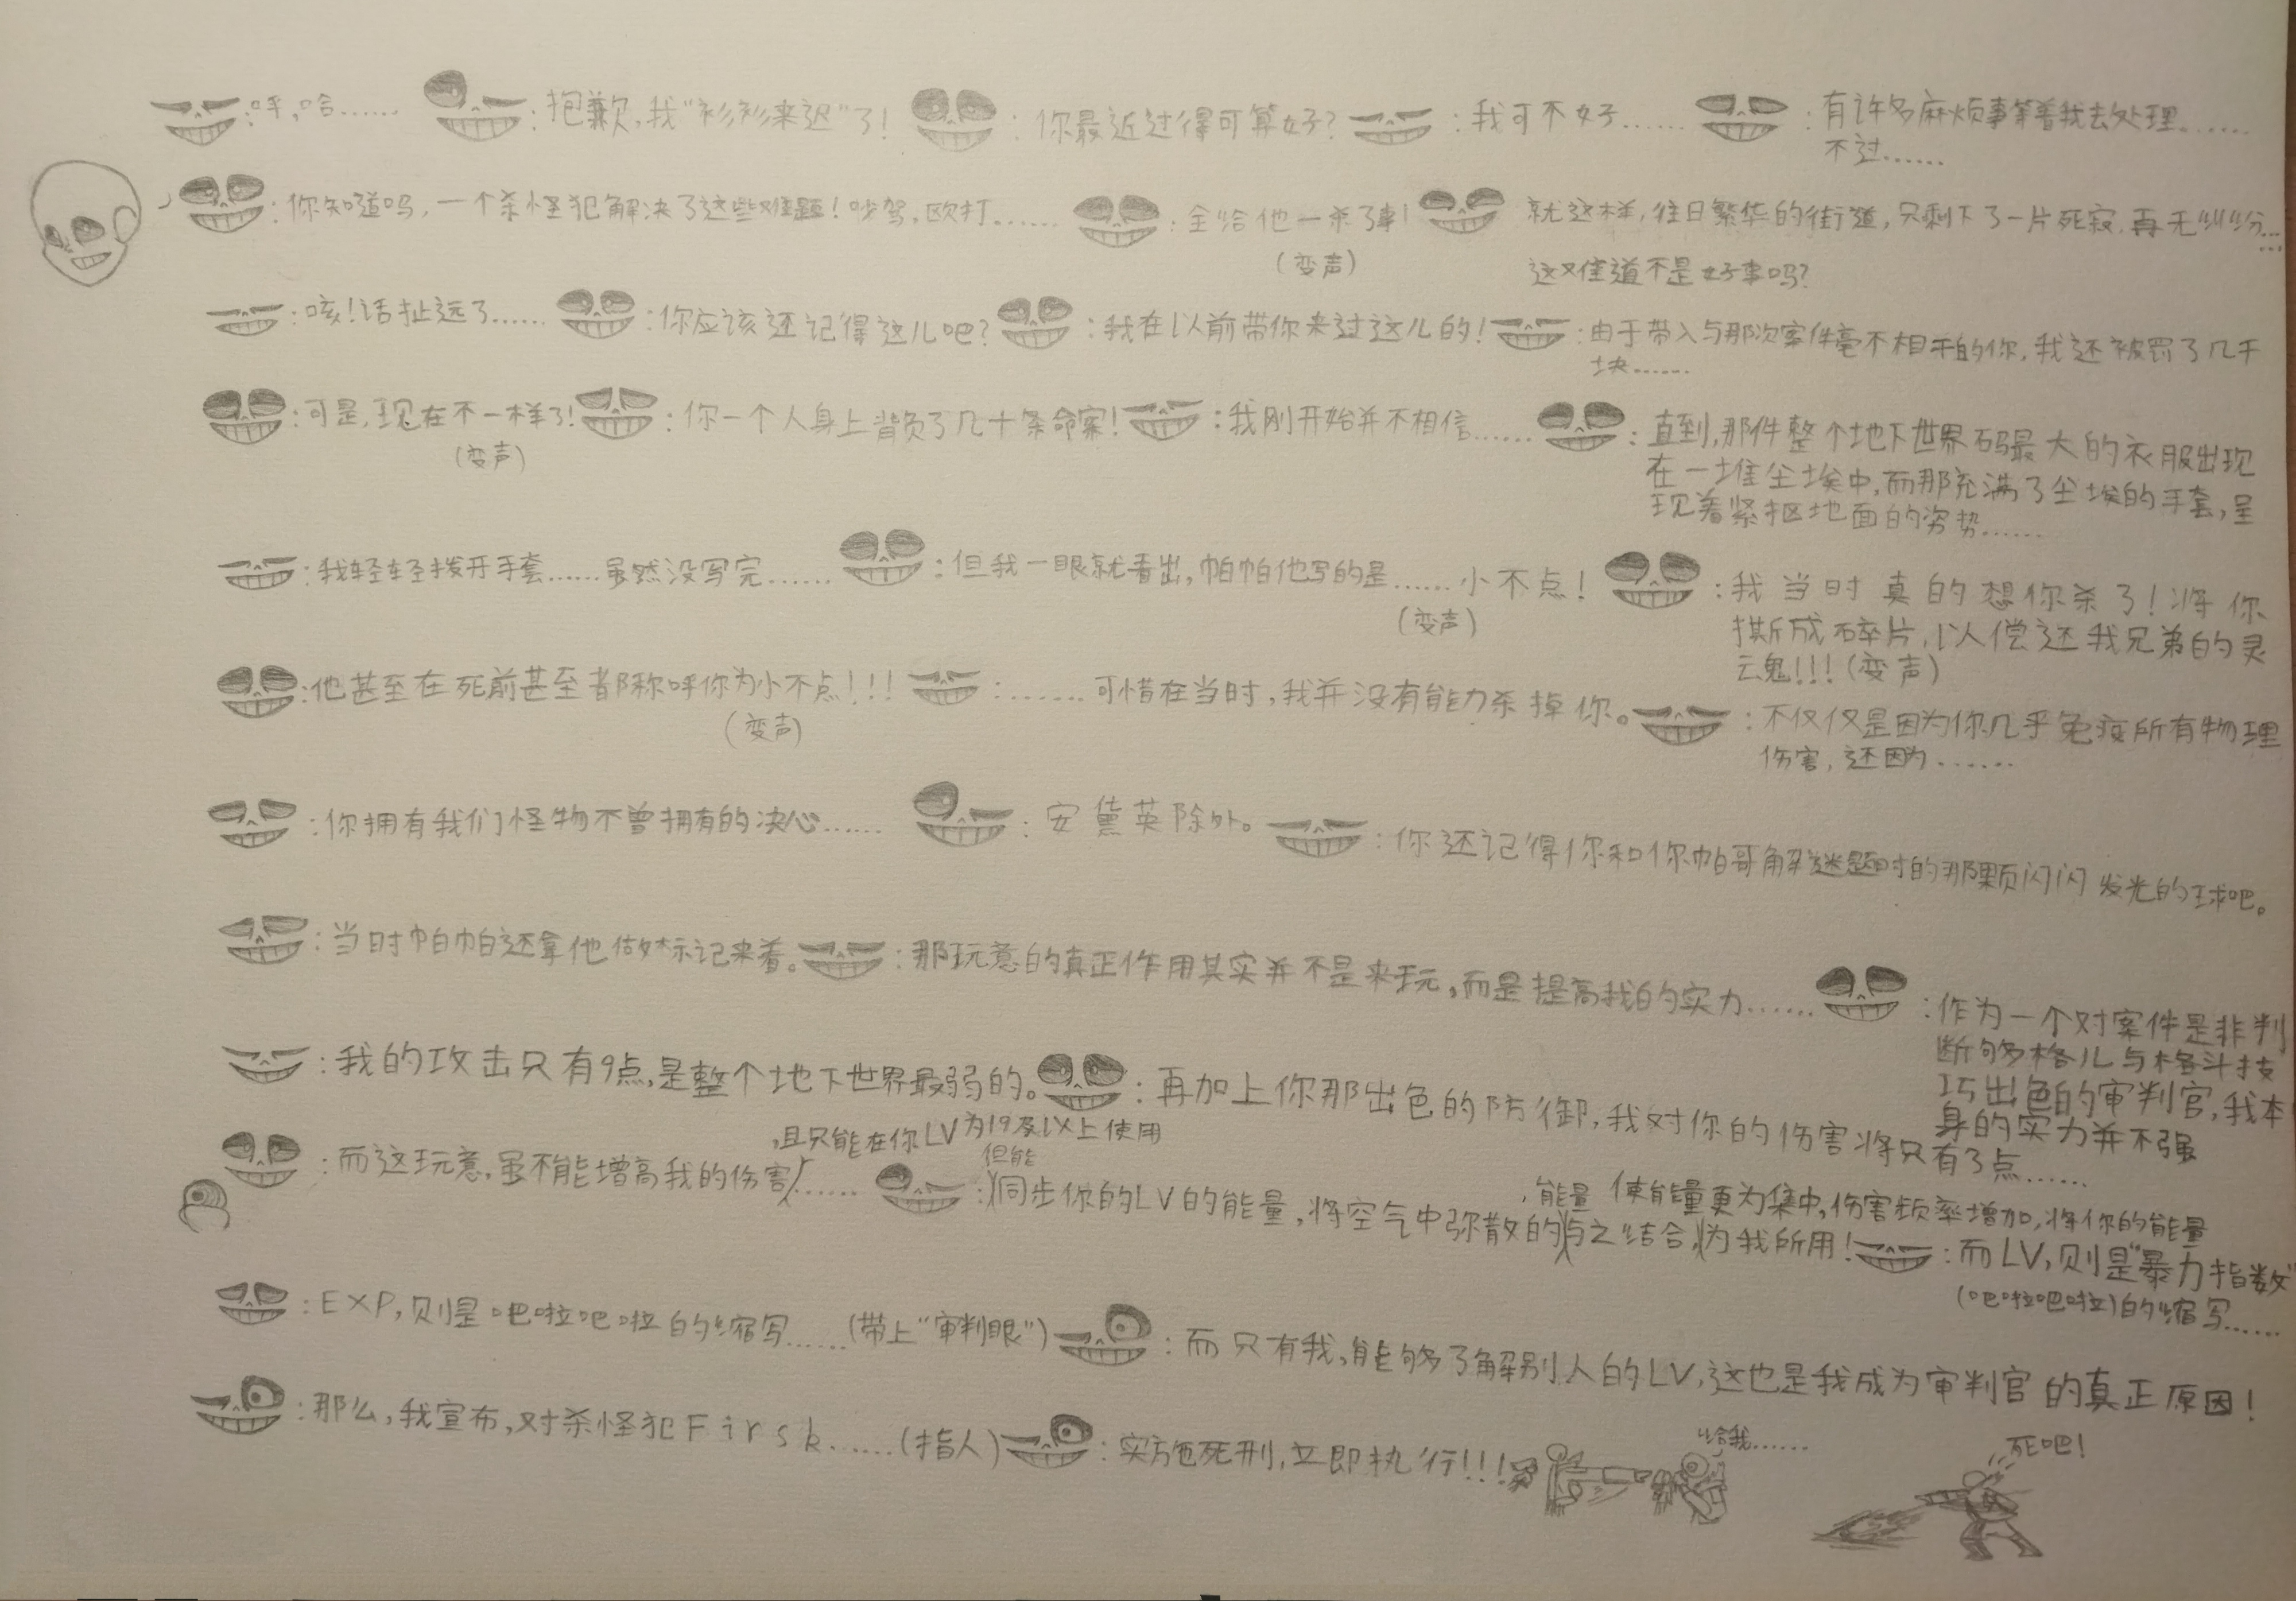 ：呼，哈…… ：抱歉，我“衫衫来迟”了！ ：你最近过得可算好？ ：我可不好…… ：有许多麻烦事等着我去处理……
不过……
：你知道吗，一个杀怪犯解决了这些难题！吵驾，欧打…… ：全给他一杀了事！ 就这样，往日繁华的街道，只剩下了一片死寂，再无“纠纷……
（变声）
这难道不是好事吗？
：咳！话扯远了…… ：你应该还记得这儿吧？ ：我在以前带你来过这儿的！ ：由于带入与那次案件毫不相干的你，我还被罚了几千
块……
：可是，现在不一样了！ ：你一个人身上背负了几十条命案！ ：我刚开始并不相信…… ：直到，那件整个地下世界码最大的衣服出现
（变声）
在一堆尘埃中，而那充满了尘埃的手套，呈
现着紧抠地面的姿势……
：我轻轻拨开手套……虽然没写完…… ：但我一眼就看出，帕帕他写的是……小不点！ ：我当时真的想你杀了！将你
（变声）
撕成碎片，以偿还我兄弟的灵
魂！！！（变声）
：他甚至在死前甚至都称呼你为小不点！！！ ：……可惜在当时，我并没有能力杀掉你。 ：不仅仅是因为你几乎免疫所有物理
（变声）
伤害，还因为……
：你拥有我们怪物不曾拥有的决心…… ：安黛英除外。 ：你还记得你和你帕哥解谜题时的那颗闪闪发光的球吧。
：当时帕帕还拿他做标记来着。 ：那玩意的真正作用其实并不是来玩，而是提高我的实力…… ：作为一个对案件是非判
断够格儿与格斗技
巧出色的审判官，我本
身的实力并不强
：我的攻击只有9点，是整个地下世界最弱的。 ：再加上你那出色的防御，我对你的伤害将只有3点……
，且只能在你LV为19及以上使用
：而这玩意，虽不能增高我的伤害…… ：同步你的LV的能量，将空气中弥散的与之结合，为我所用！ ：而LV，则是“暴力指数”
但能
，能量 使能量更为集中，伤害频率增加，将你的能量
（吧啦吧啦）的缩写……
：EXP，则是吧啦吧啦的缩写……（带上“审判眼”） ：而只有我，能够了解别人的LV，这也是我成为审判官的真正原因！
：那么，我宣布，对杀怪犯Firsk……（指人） ：实施死刑，立即执行！！！
给我……
死吧！